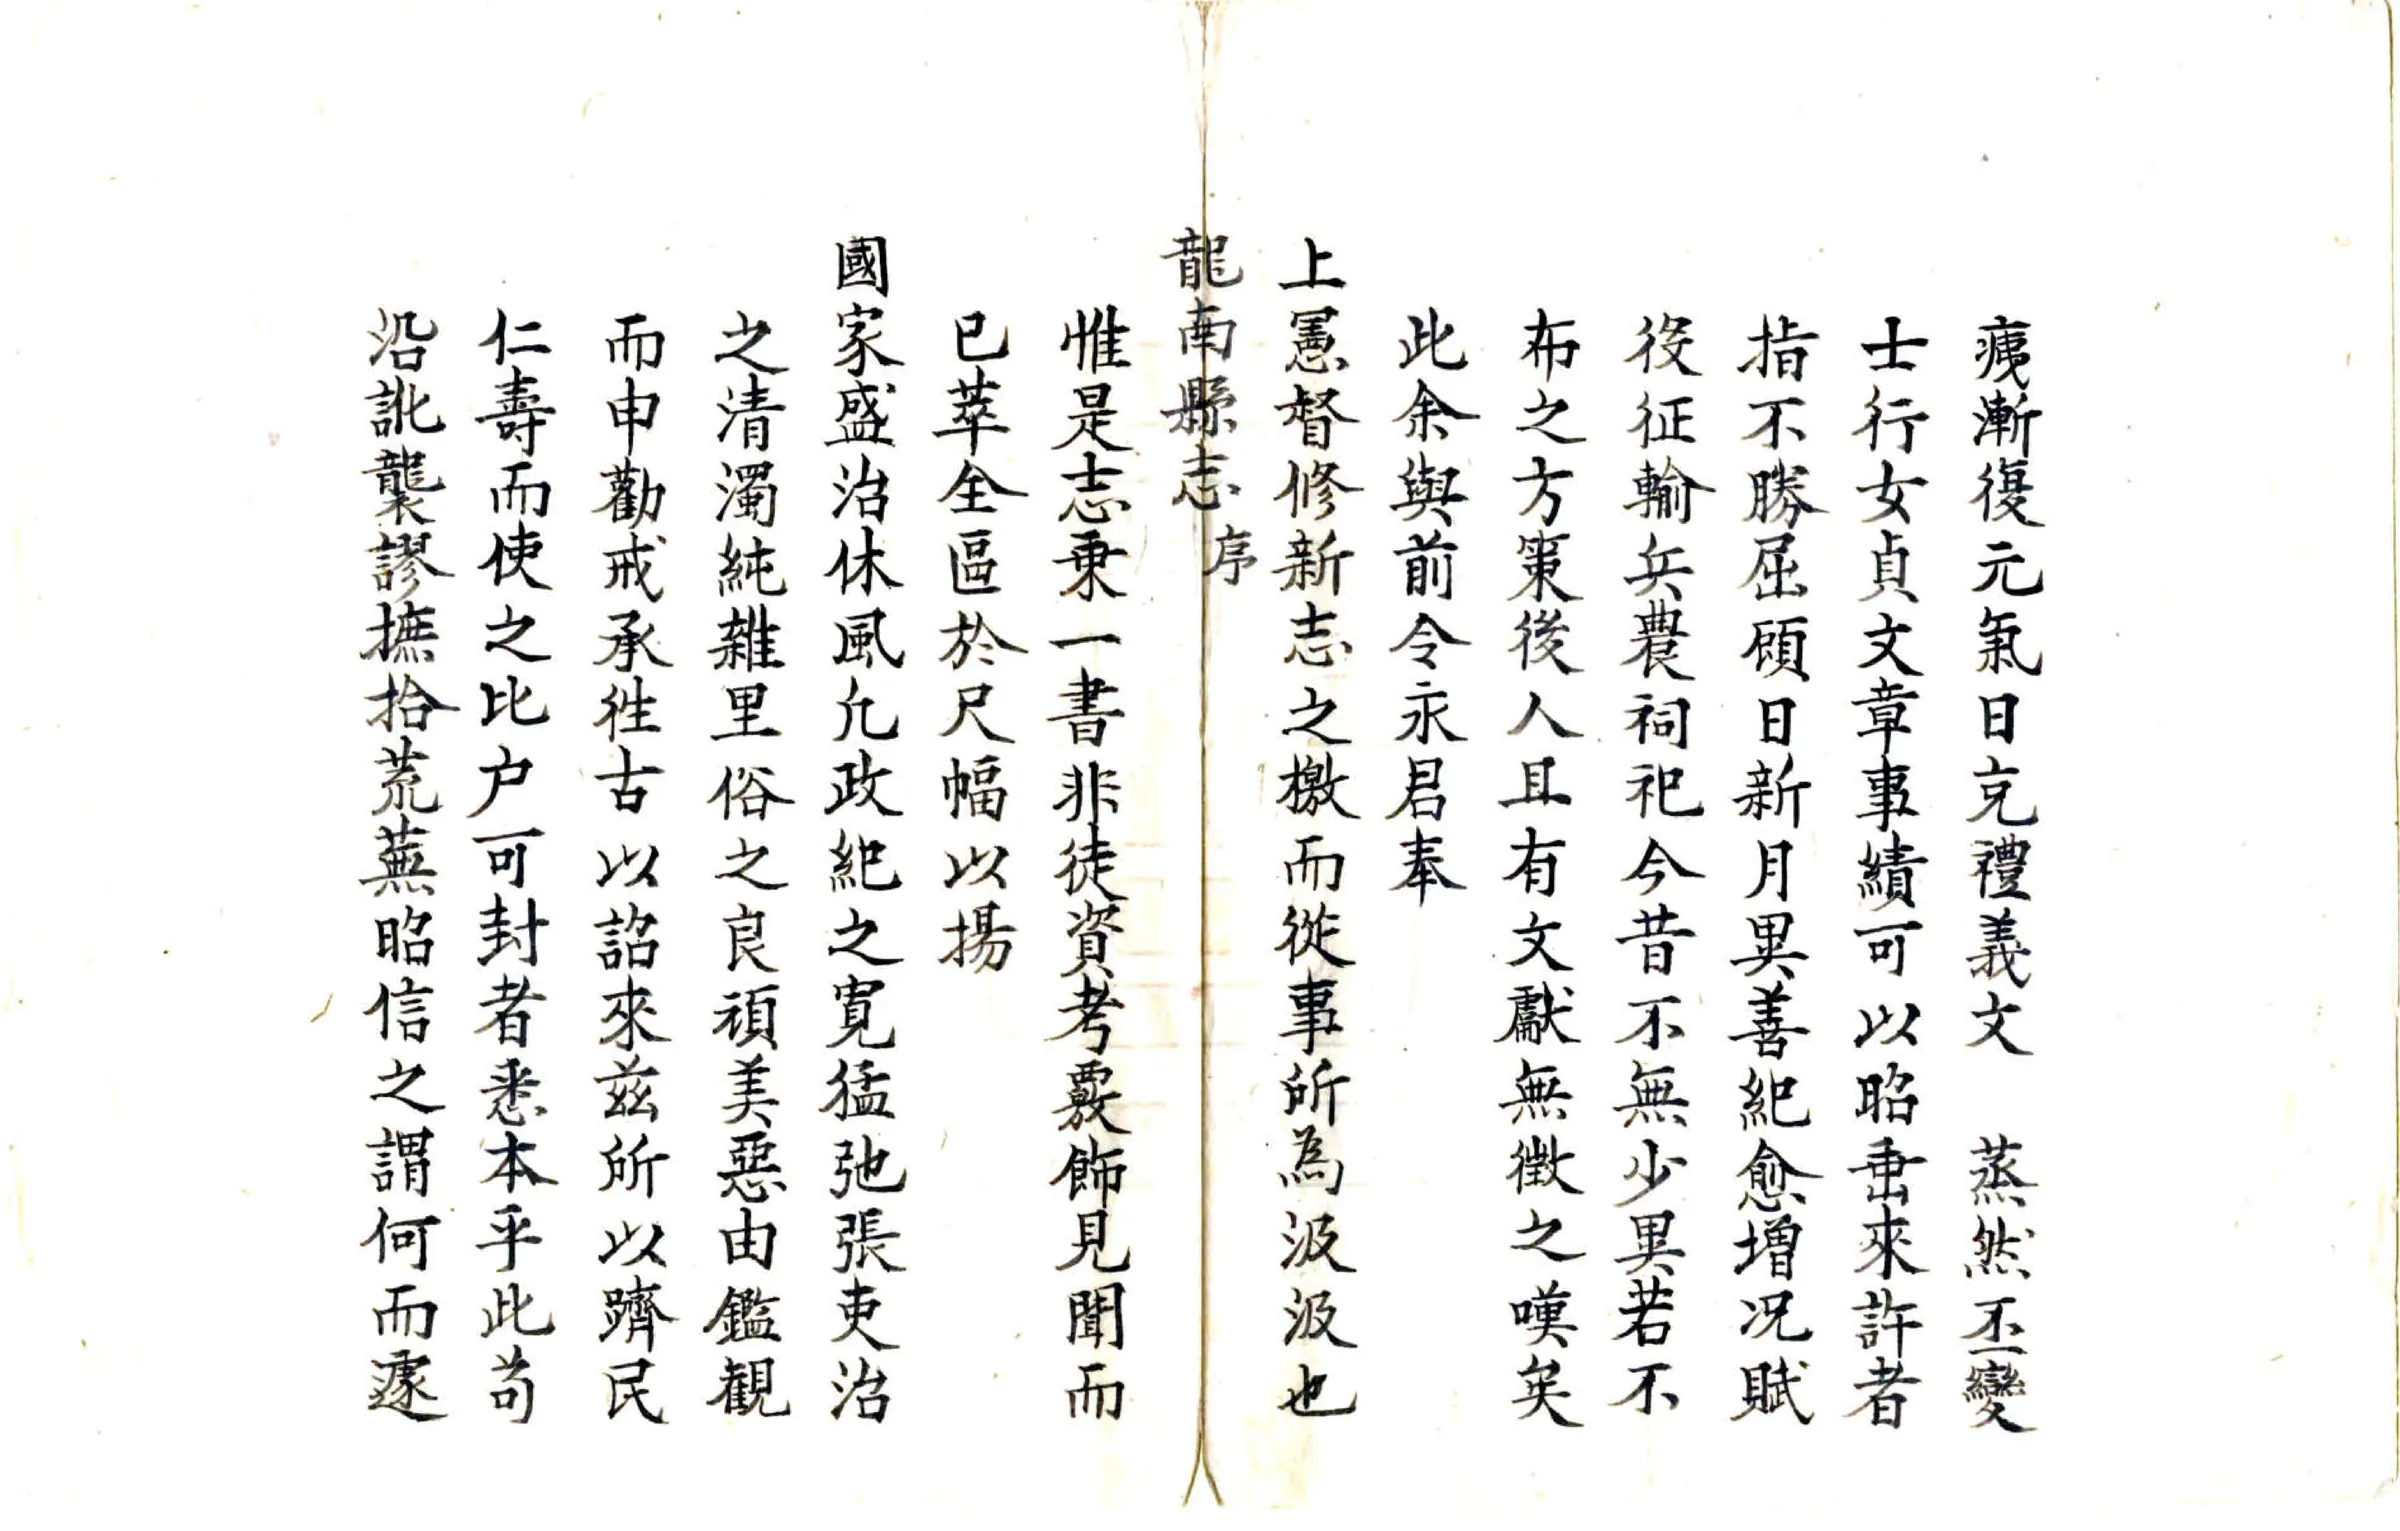 痍漸復元氣日充禮義文 蒸然丕變
士行女貞文章事績可以昭垂來許者
指不勝屈顧日新月異善紀愈增况賦
役征輸兵農祠祀今昔不無少異若不
布之方策後人且有文獻無徵之嘆矣
此余與前令永君奉
上憲督修新志之檄而從事所為汲汲也
龍南縣志 序
惟是志乗一書非徒資考覈飾見聞而
已萃全區於尺幅以揚
國家盛治休風凢政紀之寛猛弛張吏治
之清濁純雜里俗之良頑美惡由鑑觀
而申勸戒承徃古以詔來兹所以躋民
仁壽而使之比户可封者悉本乎此苟
沿訛襲謬摭拾荒蕪昭信之謂何而遽